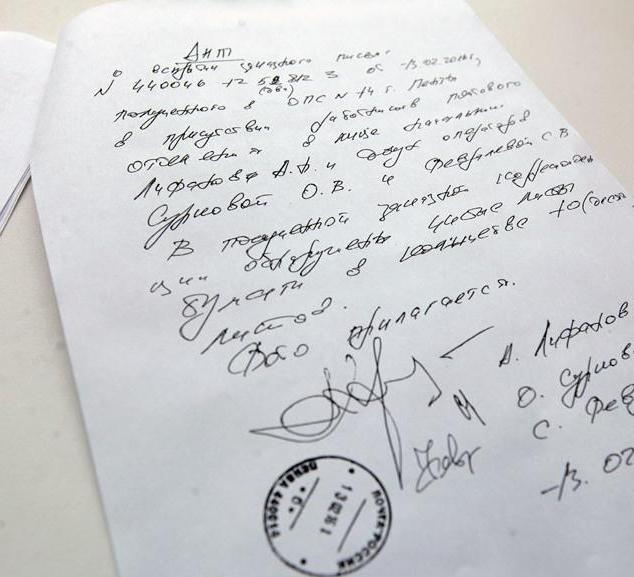 Акт
вскрытия заказного письма
N 440046 72 50 812 3 от 13.02.2016г,
полученного в ОПС N 14 г. Пенза
в присутствии работников почтового
отделения в лице начальника
Лифанова А. и двух операторов
Сурковой О.В. и Февралевой С.В
В полученной заказной корреспонден
ции обнаружены чистые листы
бумаги в количестве 10
листов.
Фото прилагается.
А. Лифанов
О. Сурков
С. Фев
13. 02
ПОЧТА РОССИИ
ПЕНЗА 440014